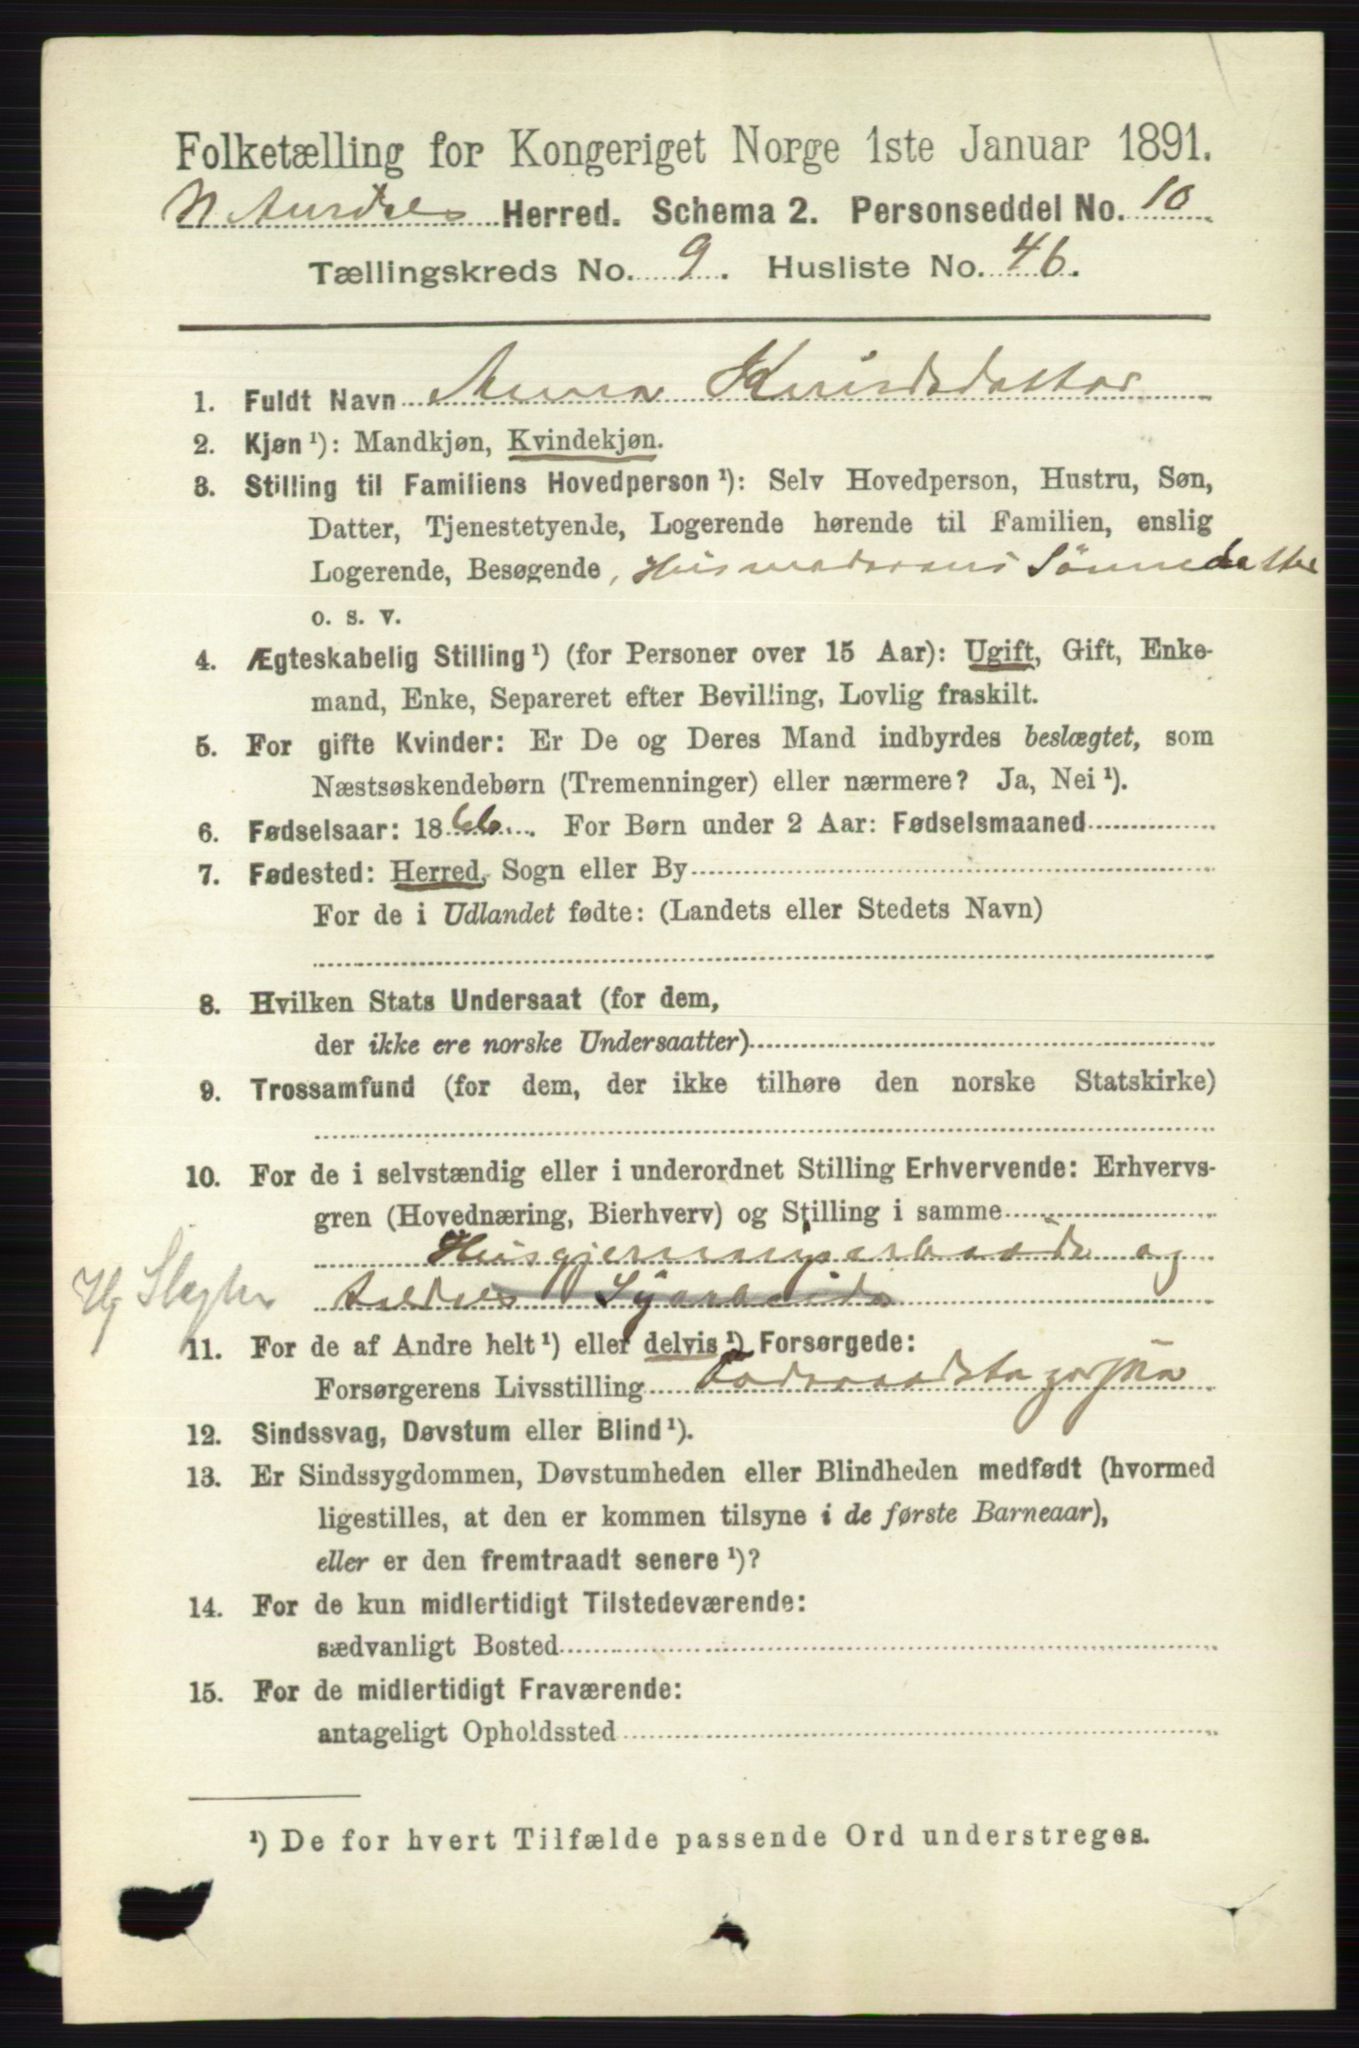 Folketælling for Kongeriget Norge 1ste Januar 1891.
N Aurdals Herred. Schema 2. Personseddel No. 10
Tællingskreds No. 9. Husliste No. 46.
1. Fuldt Navn Anna
2. Kjøn¹): Mandkjøn, Kvindekjøn.
3. Stilling til Familiens Hovedperson¹): Selv Hovedperson, Hustru, Søn,
Datter, Tjenestetyende, Logerende hørende til Familien, enslig
Logerende, Besøgende, Husmoderens Sønnedatter
o. s. v.
4. Ægteskabelig Stilling¹) (for Personer over 15 Aar): Ugift, Gift, Enke-
mand, Enke, Separeret efter Bevilling, Lovlig fraskilt.
5. For gifte Kvinder: Er De og Deres Mand indbyrdes beslægtet, som
Næstsøskendebørn (Tremenninger) eller nærmere? Ja, Nei¹).
6. Fødselsaar: 1866. For Børn under 2 Aar: Fødselsmaaned
7. Fødested: Herred, Sogn eller By
For de i Udlandet fødte: (Landets eller Stedets Navn)
8. Hvilken Stats Undersaat (for dem,
der ikke ere norske Undersaatter)
9. Trossamfund (for dem, der ikke tilhøre den norske Statskirke)
10. For de i selvstændig eller i underordnet Stilling Erhvervende: Erhvervs-
gren (Hovednæring, Bierhverv) og Stilling i samme
Husgjerningsarbeide og
Hg Slegtn deels Syarbeide
11. For de af Andre helt¹) eller delvis¹) Forsørgede:
Forsørgerens Livsstilling
12. Sindssvag, Døvstum eller Blind¹).
13. Er Sindssygdommen, Døvstumheden eller Blindheden medfødt (hvormed
ligestilles, at den er kommen tilsyne i de første Barneaar),
eller er den fremtraadt senere¹)?
14. For de kun midlertidigt Tilstedeværende:
sædvanligt Bosted
15. For de midlertidigt Fraværende:
antageligt Opholdssted
¹) De for hvert Tilfælde passende Ord understreges.